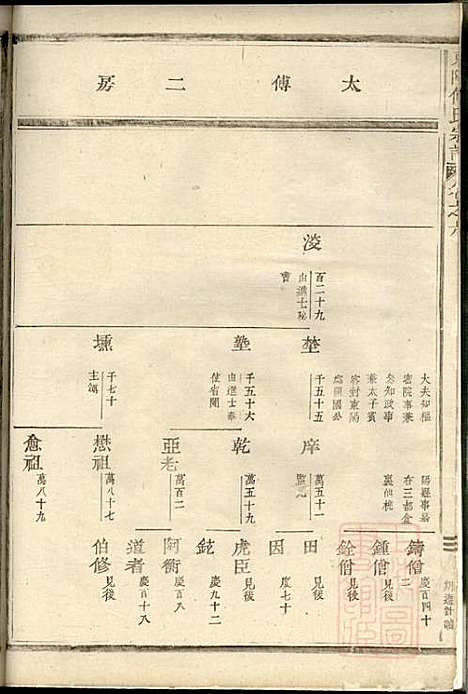 太傅二房
淩
百二十九
由進士秘
書
大夫知樞
密院事兼
參知政事
兼太子賓
客封東陽
埜
千五十五
塾
千五十六
由進士奉
使省閣
壎
千七十
主簿
在三都盒
裏仙桃
庠
萬五十一
監元
乾
萬五十九
亞老
萬百二
懋祖
萬八十七
愈祖
萬八十九
鑄僧
慶百四十
二
鍾僧
見後
銓僧
見後
田
見後
因
慶七十
虎臣
見後
鉉
慶九十二
阿衡
見後
道者
慶百十八
伯修
見後